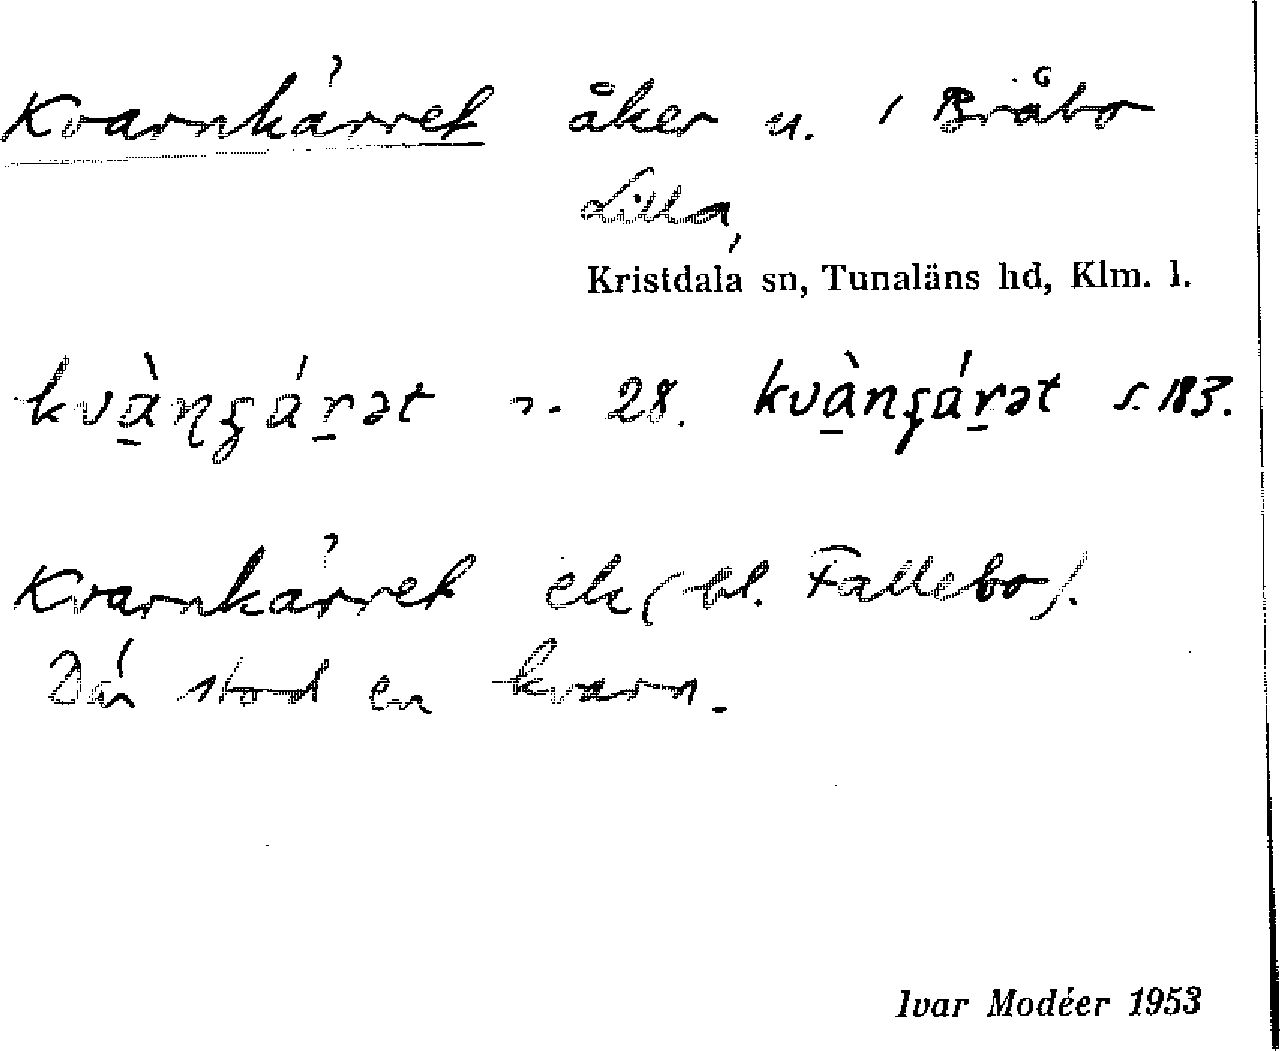 Kvarnkärret åker u. i Bråbo
Lilla,
Kristdala sn, Tunaläns hd, Klm. l.
kvànʂárət s. 28. kvànʂárət s. 183.
Kvarnkärret ek (bl. Fallebo).
Där stod en kvarn.
Ivar Modéer 1953